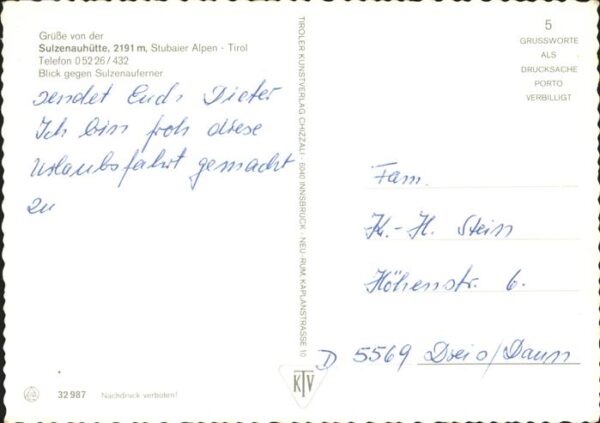 Grüße von der
Sulzenauhütte, 2191 m, Stubaier Alpen - Tirol
Telefon 0 52 26 / 432
Blick gegen Sulzenauferner
sendet Euch Dieter
Ich bin froh diese
Urlaubsfahrt gemacht
zu
TIROLER KUNSTVERLAG CHIZZALI · 6040 INNSBRUCK - NEU-RUM, KAPLANSTRASSE 10
5
GRUSSWORTE
ALS
DRUCKSACHE
PORTO
VERBILLIGT
Fam.
K.-H. Stein
Höhenstr. 6.
D 5569 Dreis/Daun
KTV
32 987 Nachdruck verboten!